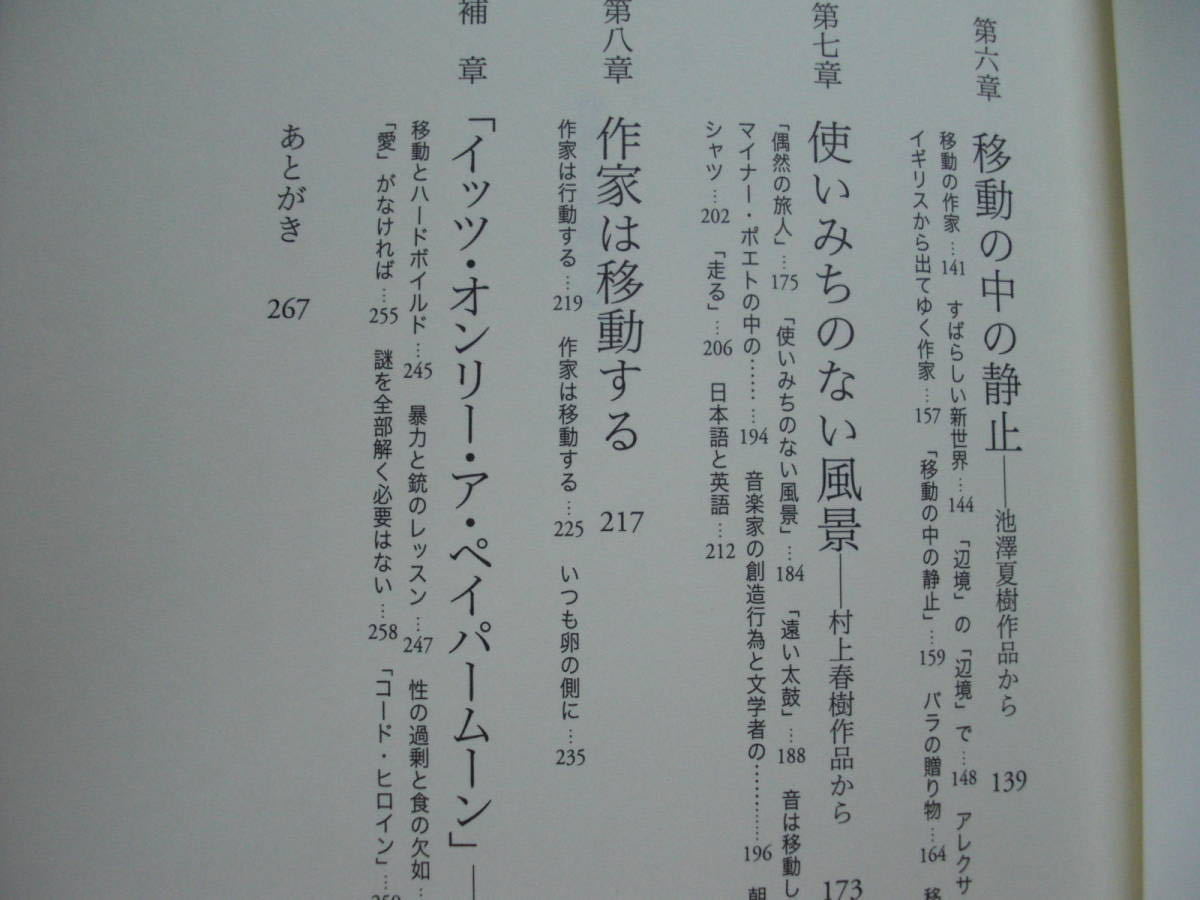 第六章 移動の中の静止――池澤夏樹作品から 139
移動の作家…141 すばらしい新世界…144 「辺境」の「辺境」で…148 アレクサ
イギリスから出てゆく作家…157 「移動の中の静止」…159 バラの贈り物…164 移
第七章 使いみちのない風景――村上春樹作品から 173
「偶然の旅人」…175 「使いみちのない風景」…184 「遠い太鼓」…188 音は移動し
マイナー・ポエトの中の………194 音楽家の創造行為と文学者の…………196 朝
シャツ…202 「走る」…206 日本語と英語…212
第八章 作家は移動する 217
作家は行動する…219 作家は移動する…225 いつも卵の側に…235
補章 「イッツ・オンリー・ア・ペイパームーン」―
移動とハードボイルド…245 暴力と銃のレッスン…247 性の過剰と食の欠如…
「愛」がなければ…255 謎を全部解く必要はない…258 「コード・ヒロイン」…
あとがき 267